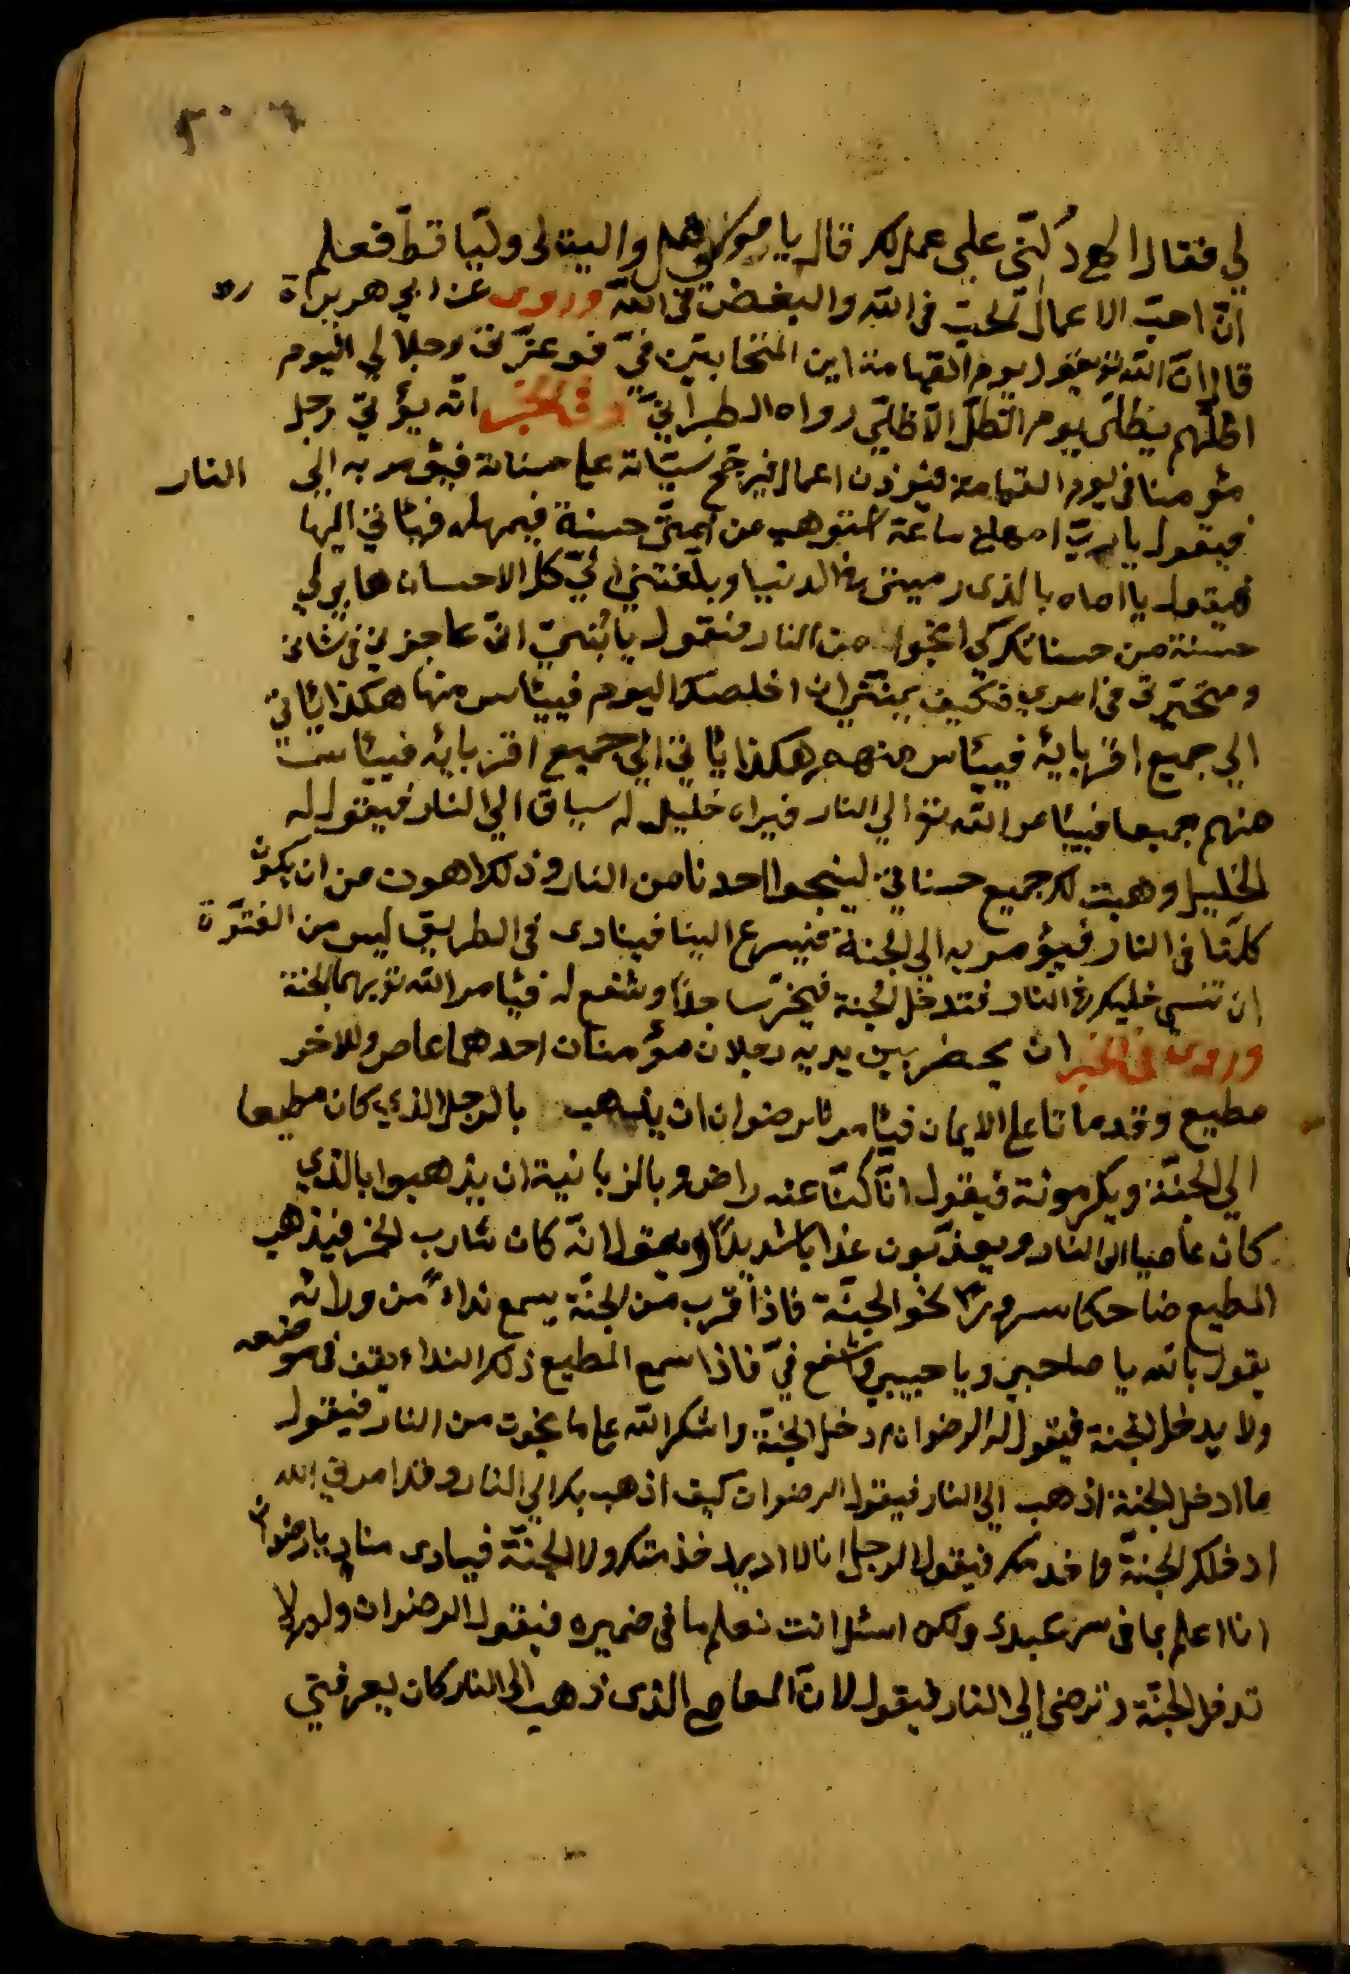 لي فقال الهى دُلّنى على عمل لك قال يا موسى هل واليت لى وليّا قطّ فعلم
انّ احبّ الاعمال الحبّ فى الله والبغض فى الله وروى عن ابي هريرة رض
قال انّ الله تع يقول يوم القيامة اين المتحابّين فىّ فو عزّتى وجلالي اليوم
اظلّهم بظلّى يوم لا ظلّ الا ظلّي رواه الطبرانيّ وفى الخبر انّه يؤتى برجل
مؤمنا فى يوم القيامة فيوزن اعماله فيرجّح سيّاته على حسناته فيؤمر به الى النار
فيقول يا ربّ امهلنى ساعة استوهب من اميّ حسنة فيمهله فيأتي اليها
فيقول يا اماه بالذى رميتنى فى الدنيا وبلّغتنى اليّ كل الاحسان هاب لي
حسنة من حسناتك كى انجوا من النار فتقول يا بُنيّ انّ عاجزنى فى شانى
ومتحيّرتى فى امري فكيف يمكن ان اخلصك اليوم فييأس منها هكذا يأتى
الي جميع اقربائه فييأس منهم وهكذا يأتي الى جميع اقربائه فييأست
منهم جميعا فيأمر الله تع الي النار فيراه خليل له سياق الي النار فيقول له
الخليل وهبت لك جميع حسناتي لينجوا احدنا من النار وذلك اهون من ان يكون
كلّنا فى النار فيؤمر به الي الجنة فيسرع البنا فينادى فى الطريق ليس من الفتوّة
ان تنسى خليك فى النار فتدخل الجنة فيخرّ ساجداً وشفع له فيأمر الله تع بهما الجنة
وروى فى الخبر ان يحضر بين يديه رجلان مؤمنان احدهما عاص والاخر
مطيع وقد ماتا على الايمان فيأمر تا رضوان ان يذهب بالرجل الذي كان مطيعا
الي الجنّة ويكرمونه فيقول انّا كنّا عنه راض وبالزبانية ان يذهبوا بالذي
كان عاصيا الى النار ويعذّبون عذابا شديداً ويقول انّه كان شارب الخمر فيذهب
المطيع ضاحكا سرورا نحو الجنّة فاذا قرب من الجنّة يسمع نداءً من ورائه
يقول بالله يا صاحبى ويا حبيبى وشفع فيّ فاذا سمع المطيع ذلك النداء يقف فى موضعه
ولا يدخل الجنة فيقول له الرضوان ادخل الجنّة واشكر الله على ما نجوت من النار فيقول
ما ادخل الجنة اذهب الي النار فيقول الرضوان كيف اذهب بك الي النار وقد امرني الله
ادخلك الجنّة واخدمك فيقول الرجل انا لا اريد خدمتك ولا الجنّة فينادى مناد يا رضوان
انا اعلم بما فى سر عبدى ولكن اسئل انت نعلم ما فى ضميره فيقول الرضوان ولم لا
تدخل الجنّة وترضى الي النار فيقول لانّ العاصى الذى ذهب الى النار كان يعرفنى